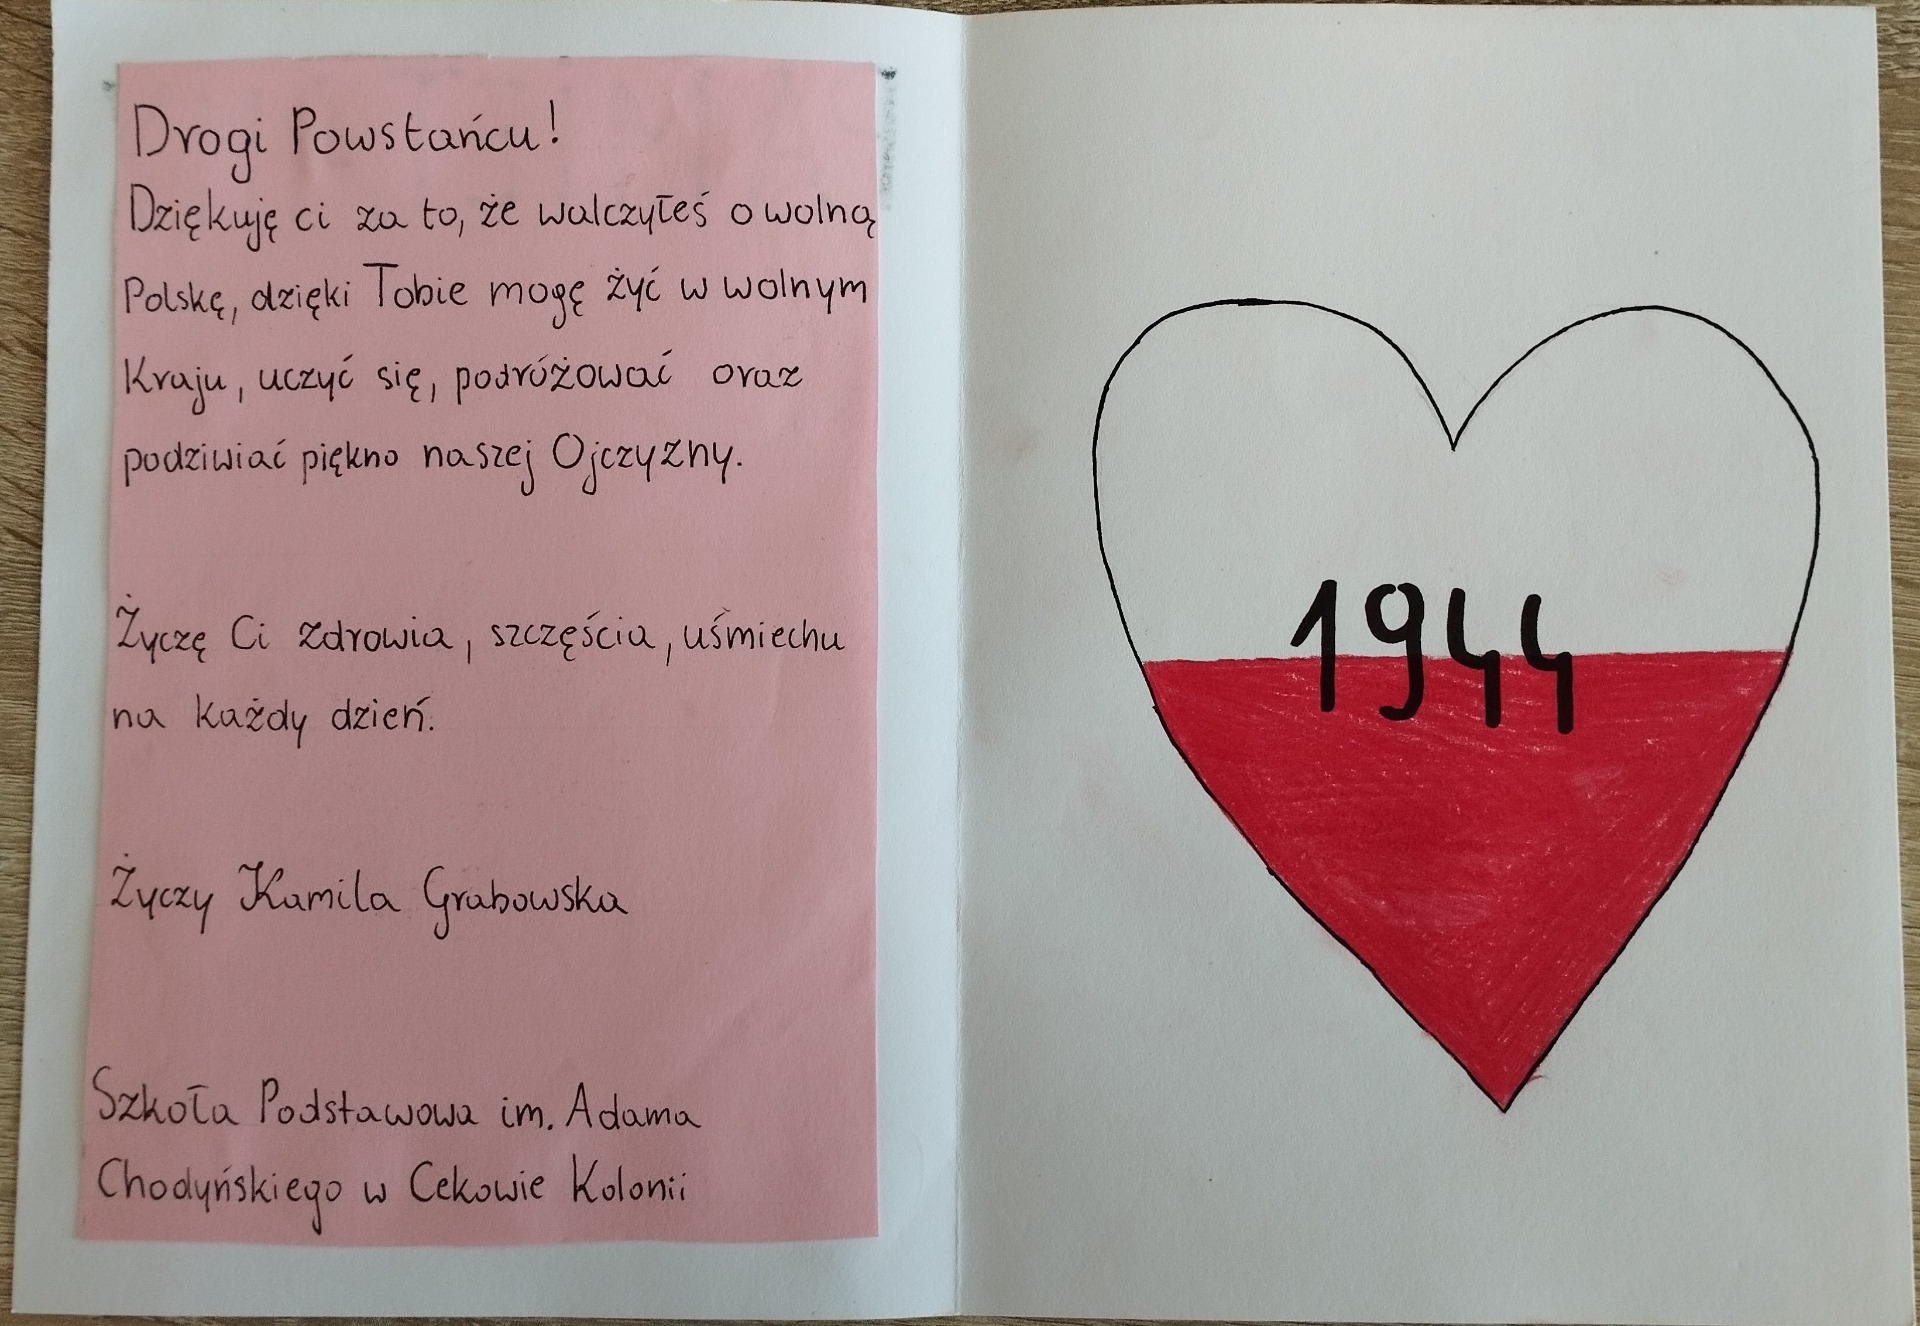 Drogi Powstańcu!
Dziękuję ci za to, że walczyłeś o wolną
Polskę, dzięki Tobie mogę żyć w wolnym
Kraju, uczyć się, podróżować oraz
podziwiać piękno naszej Ojczyzny.
Życzę Ci zdrowia, szczęścia, uśmiechu
na każdy dzień.
Życzy Kamila Grabowska
Szkoła Podstawowa im. Adama
Chodyńskiego w Cekowie Kolonii
1944